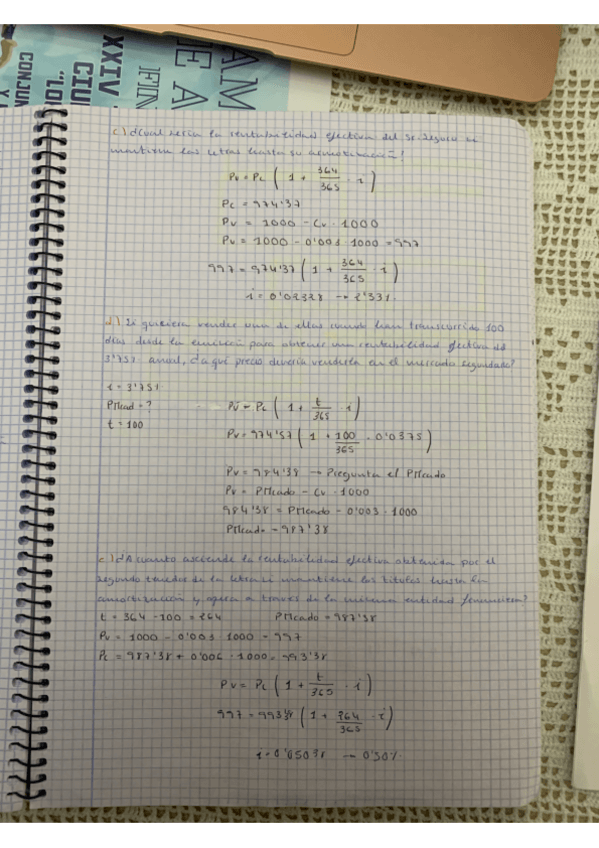 AM
E A
FIN
XXIV
CIU
"LO
CONJUN
Y
c) ¿Cual sería la rentabilidad efectiva del Sr. Seguro si
mantiene las letras hasta su amortización?
Pv = Pc ( 1 + 364/365 · i )
Pc = 974'37
Pv = 1000 - Cv · 1000
Pv = 1000 - 0'003 · 1000 = 997
997 = 974'37 ( 1 + 364/365 · i )
i = 0'02328 → 2'33%.
d) Si quisiera vender una de ellas cuando han transcurrido 100
días desde la emisión para obtener una rentabilidad efectiva del
3'75% anual, ¿a qué precio debería venderla en el mercado secundario?
i = 3'75%
PMcad = ?
t = 100
Pv = Pc ( 1 + t/365 · i )
Pv = 974'57 ( 1 + 100/365 · 0'0375 )
Pv = 984'38 → Pregunta el PMcado
Pv = PMcado - Cv · 1000
984'38 = PMcado - 0'003 · 1000
PMcado = 987'38
e) ¿A cuanto asciende la rentabilidad efectiva obtenida por el
segundo tenedor de la letra si mantiene los títulos hasta la
amortización y opera a través de la misma entidad financiera?
t = 364 - 100 = 264 PMcado = 987'38
Pv = 1000 - 0'003 · 1000 = 997
Pc = 987'38 + 0'006 · 1000 = 993'38
Pv = Pc ( 1 + t/365 · i )
997 = 993'38 ( 1 + 264/365 · i )
i = 0'05038 → 0'50%.